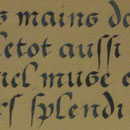 s mains de
letot aussi
iel muse e
rs splendi